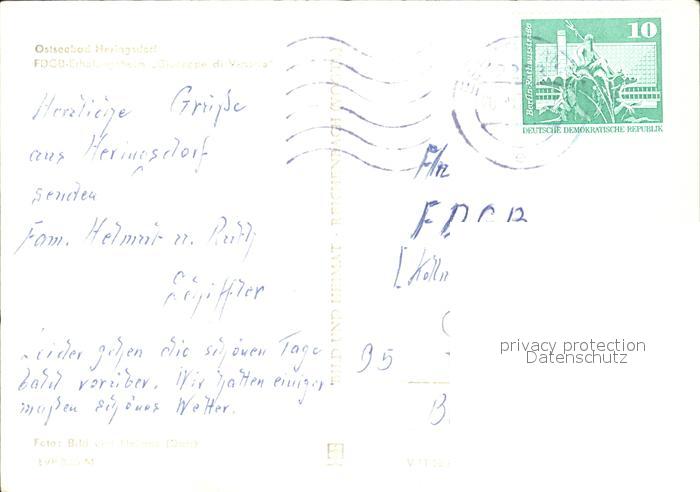 Ostseebad Heringsdorf
FDGB-Erholungsheim "Giuseppe di Vittorio"
Herzliche Grüße
aus Heringsdorf
senden
Fam. Helmut u. Ruth
Schiffler
Leider gehen die schönen Tage
bald vorüber. Wir hatten einiger
maßen schönes Wetter.
Foto: Bild und Heimat
BILD UND HEIMAT · REICHENBACH
10
Berlin-Rathausstraße
DEUTSCHE DEMOKRATISCHE REPUBLIK
An
FDGB
95
B
privacy protection
Datenschutz